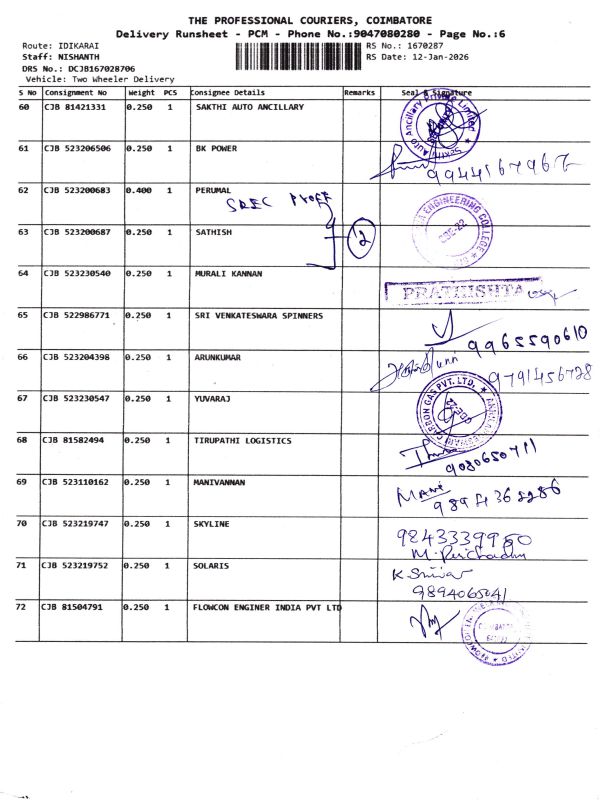 THE PROFESSIONAL COURIERS, COIMBATORE
Delivery Runsheet - PCM - Phone No.:9047080280 - Page No.:6
Route: IDIKARAI RS No.: 1670287
Staff: NISHANTH RS Date: 12-Jan-2026
DRS No.: DCJB167028706
Vehicle: Two Wheeler Delivery
S No Consignment No Weight PCS Consignee Details Remarks Seal & Signature
60 CJB 81421331 0.250 1 SAKTHI AUTO ANCILLARY
Auto Ancillary Private Limited
61 CJB 523206506 0.250 1 BK POWER
62 CJB 523200683 0.400 1 PERUMAL
SREC
ENGINEERING COLLEGE
63 CJB 523200687 0.250 1 SATHISH 12
64 CJB 523230540 0.250 1 MURALI KANNAN
PRATHISHTA
65 CJB 522986771 0.250 1 SRI VENKATESWARA SPINNERS
9965590610
66 CJB 523204398 0.250 1 ARUNKUMAR
9791456728
67 CJB 523230547 0.250 1 YUVARAJ
CARBON GAS PVT. LTD.
68 CJB 81582494 0.250 1 TIRUPATHI LOGISTICS
9080650711
69 CJB 523110162 0.250 1 MANIVANNAN
Mani
70 CJB 523219747 0.250 1 SKYLINE
71 CJB 523219752 0.250 1 SOLARIS
9894065041
72 CJB 81504791 0.250 1 FLOWCON ENGINER INDIA PVT LTD